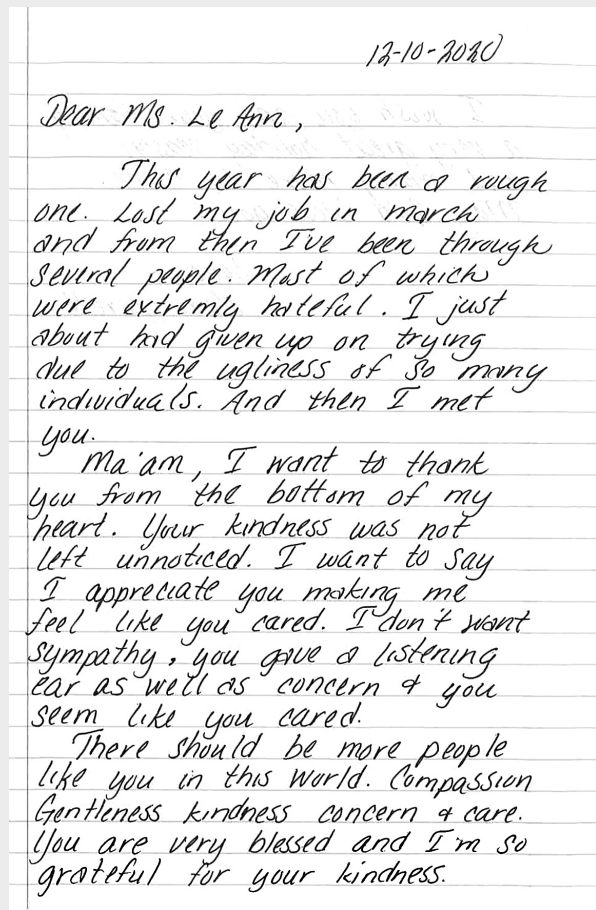 12-10-2020
Dear Ms. Le Ann,
This year has been a rough
one. Lost my job in march
and from then I've been through
several people. Most of which
were extremly hateful. I just
about had given up on trying
due to the ugliness of so many
individuals. And then I met
you.
Ma'am, I want to thank
you from the bottom of my
heart. Your kindness was not
left unnoticed. I want to say
I appreciate you making me
feel like you cared. I don't want
sympathy, you gave a listening
ear as well as concern & you
seem like you cared.
There should be more people
like you in this world. Compassion
Gentleness kindness concern & care.
You are very blessed and I'm so
grateful for your kindness.